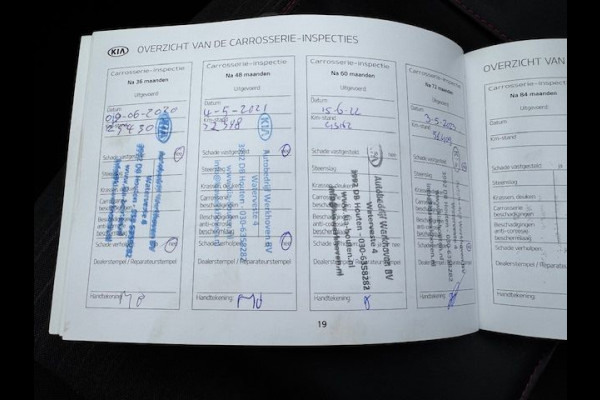 KIA OVERZICHT VAN DE CARROSSERIE-INSPECTIES
Carrosserie-inspectie
Na 36 maanden
Uitgevoerd
Datum
09-06-2020
Km-stand
Schade vastgesteld:
Steenslag
Krassen, deuken
Carrosserie
beschadigingen
Beschadiging
anti-corrosie
Schade verholpen:
nee
Dealerstempel / Reparateurstempel
Handtekening:
KIA
Autobedrijf Werkhoven BV
Waterveste 4
3992 DB Houten
Carrosserie-inspectie
Na 48 maanden
Uitgevoerd
Datum
4-5-2021
Km-stand
32348
Schade vastgesteld:
nee
Steenslag
Krassen, deuken
Carrosserie
beschadigingen
Beschadiging
anti-corrosie
beschermlaag
Schade verholpen:
nee
Dealerstempel / Reparateurstempel
Handtekening:
KIA
Autobedrijf Werkhoven BV
Waterveste 4
3992 DB Houten - 030-6358282
Carrosserie-inspectie
Na 60 maanden
Uitgevoerd
Datum
15-6-22
Km-stand
Schade vastgesteld:
nee
Steenslag
Krassen, deuken
Carrosserie
beschadigingen
Beschadiging
anti-corrosie
beschermlaag
Schade verholpen:
nee
Dealerstempel / Reparateurstempel
Handtekening:
KIA
Autobedrijf Werkhoven BV
Waterveste 4
3992 DB Houten - 030-6358282
Carrosserie-inspectie
Na 72 maanden
Uitgevoerd
Datum
3-5-2023
Km-stand
Schade vastgesteld:
Steenslag
Krassen, deuken
Carrosserie
beschadigingen
Beschadiging
anti-corrosie
beschermlaag
Schade verholpen:
Dealerstempel / Reparateurstempel
Handtekening:
19
OVERZICHT VAN
Carrosserie-inspectie
Na 84 maanden
Uitgevoerd
Datum
Km-stand
Schade vastgesteld:
Steenslag
Krassen, deuken
Carrosserie
beschadigingen
Beschadiging
anti-corrosie
beschermlaag
Schade verholpen:
Dealerstempel / Repa
Handtekening: